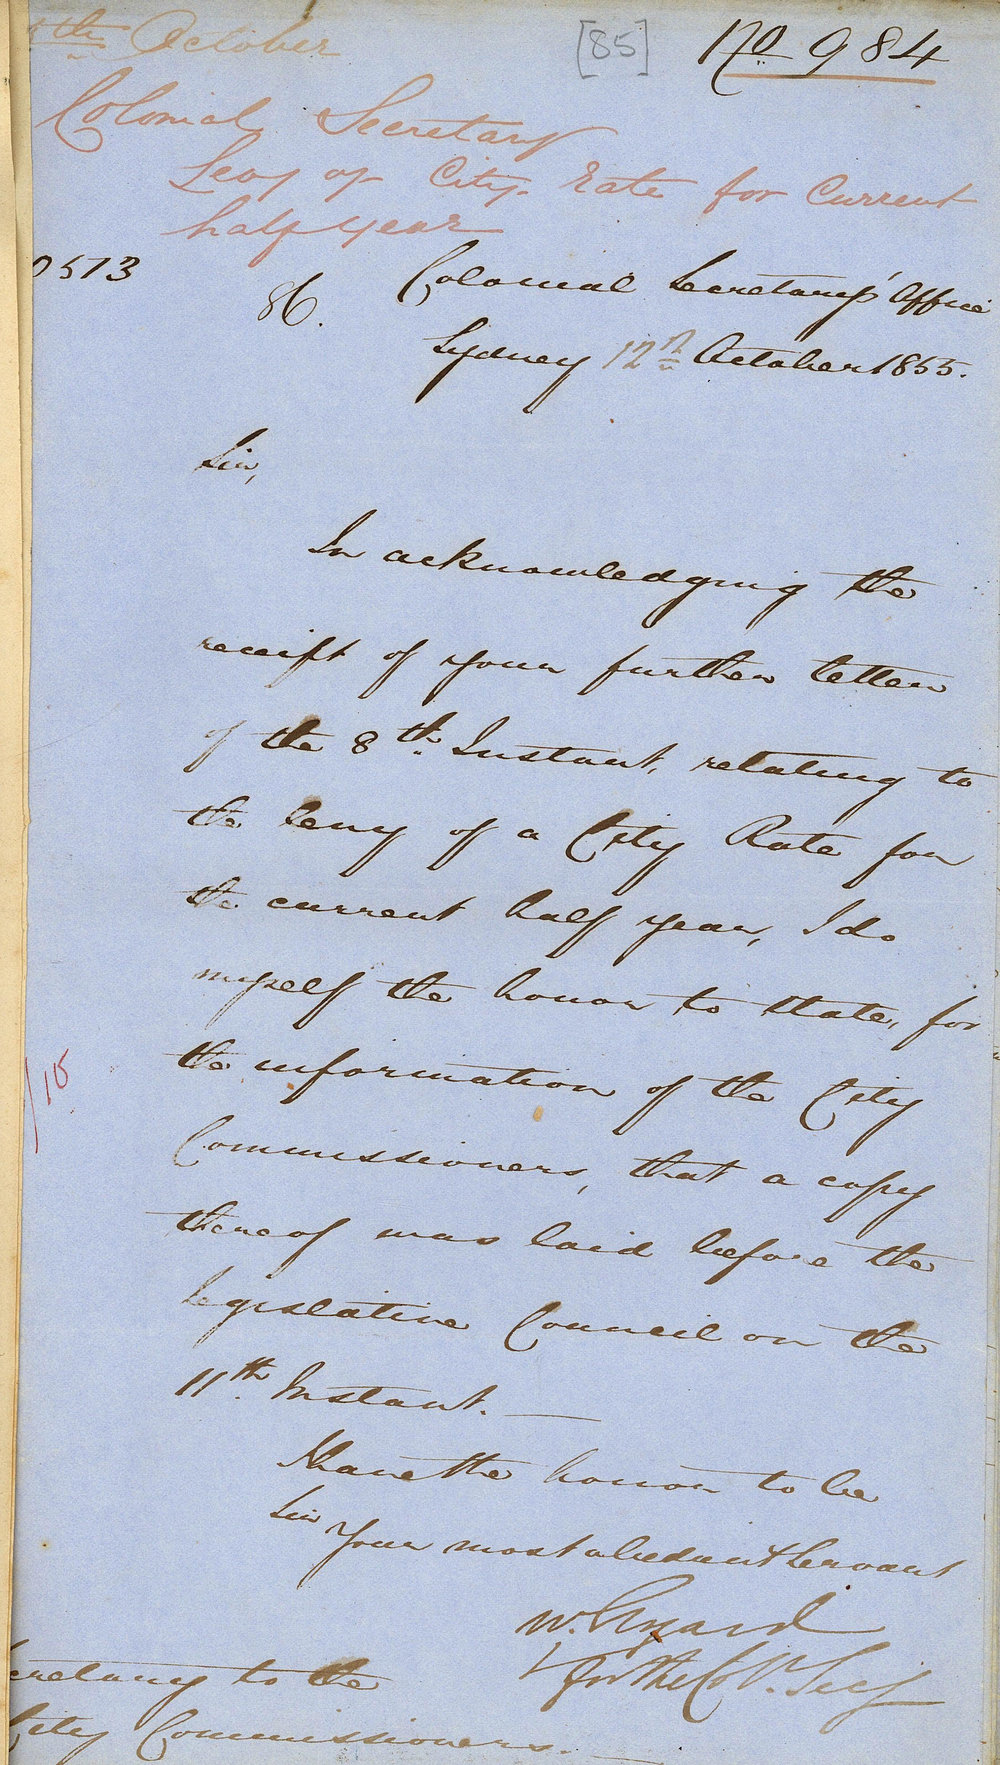 th October
[85]
No 984
Colonial Secretary
Levy of City Rate for Current
half year
0573
86.
Colonial Secretary's Office
Sydney 12th October 1855.
Sir,
In acknowledging the
receipt of your further letter
of the 8th Instant, relating to
the levy of a City Rate for
the current half year, I do
myself the honor to state, for
the information of the City
Commissioners, that a copy
thereof was laid before the
Legislative Council on the
11th Instant.
I have the honor to be
Sir
Your most obedient Servant
W.
for the Col. Secy
/15
cretary to the
City Commissioners.